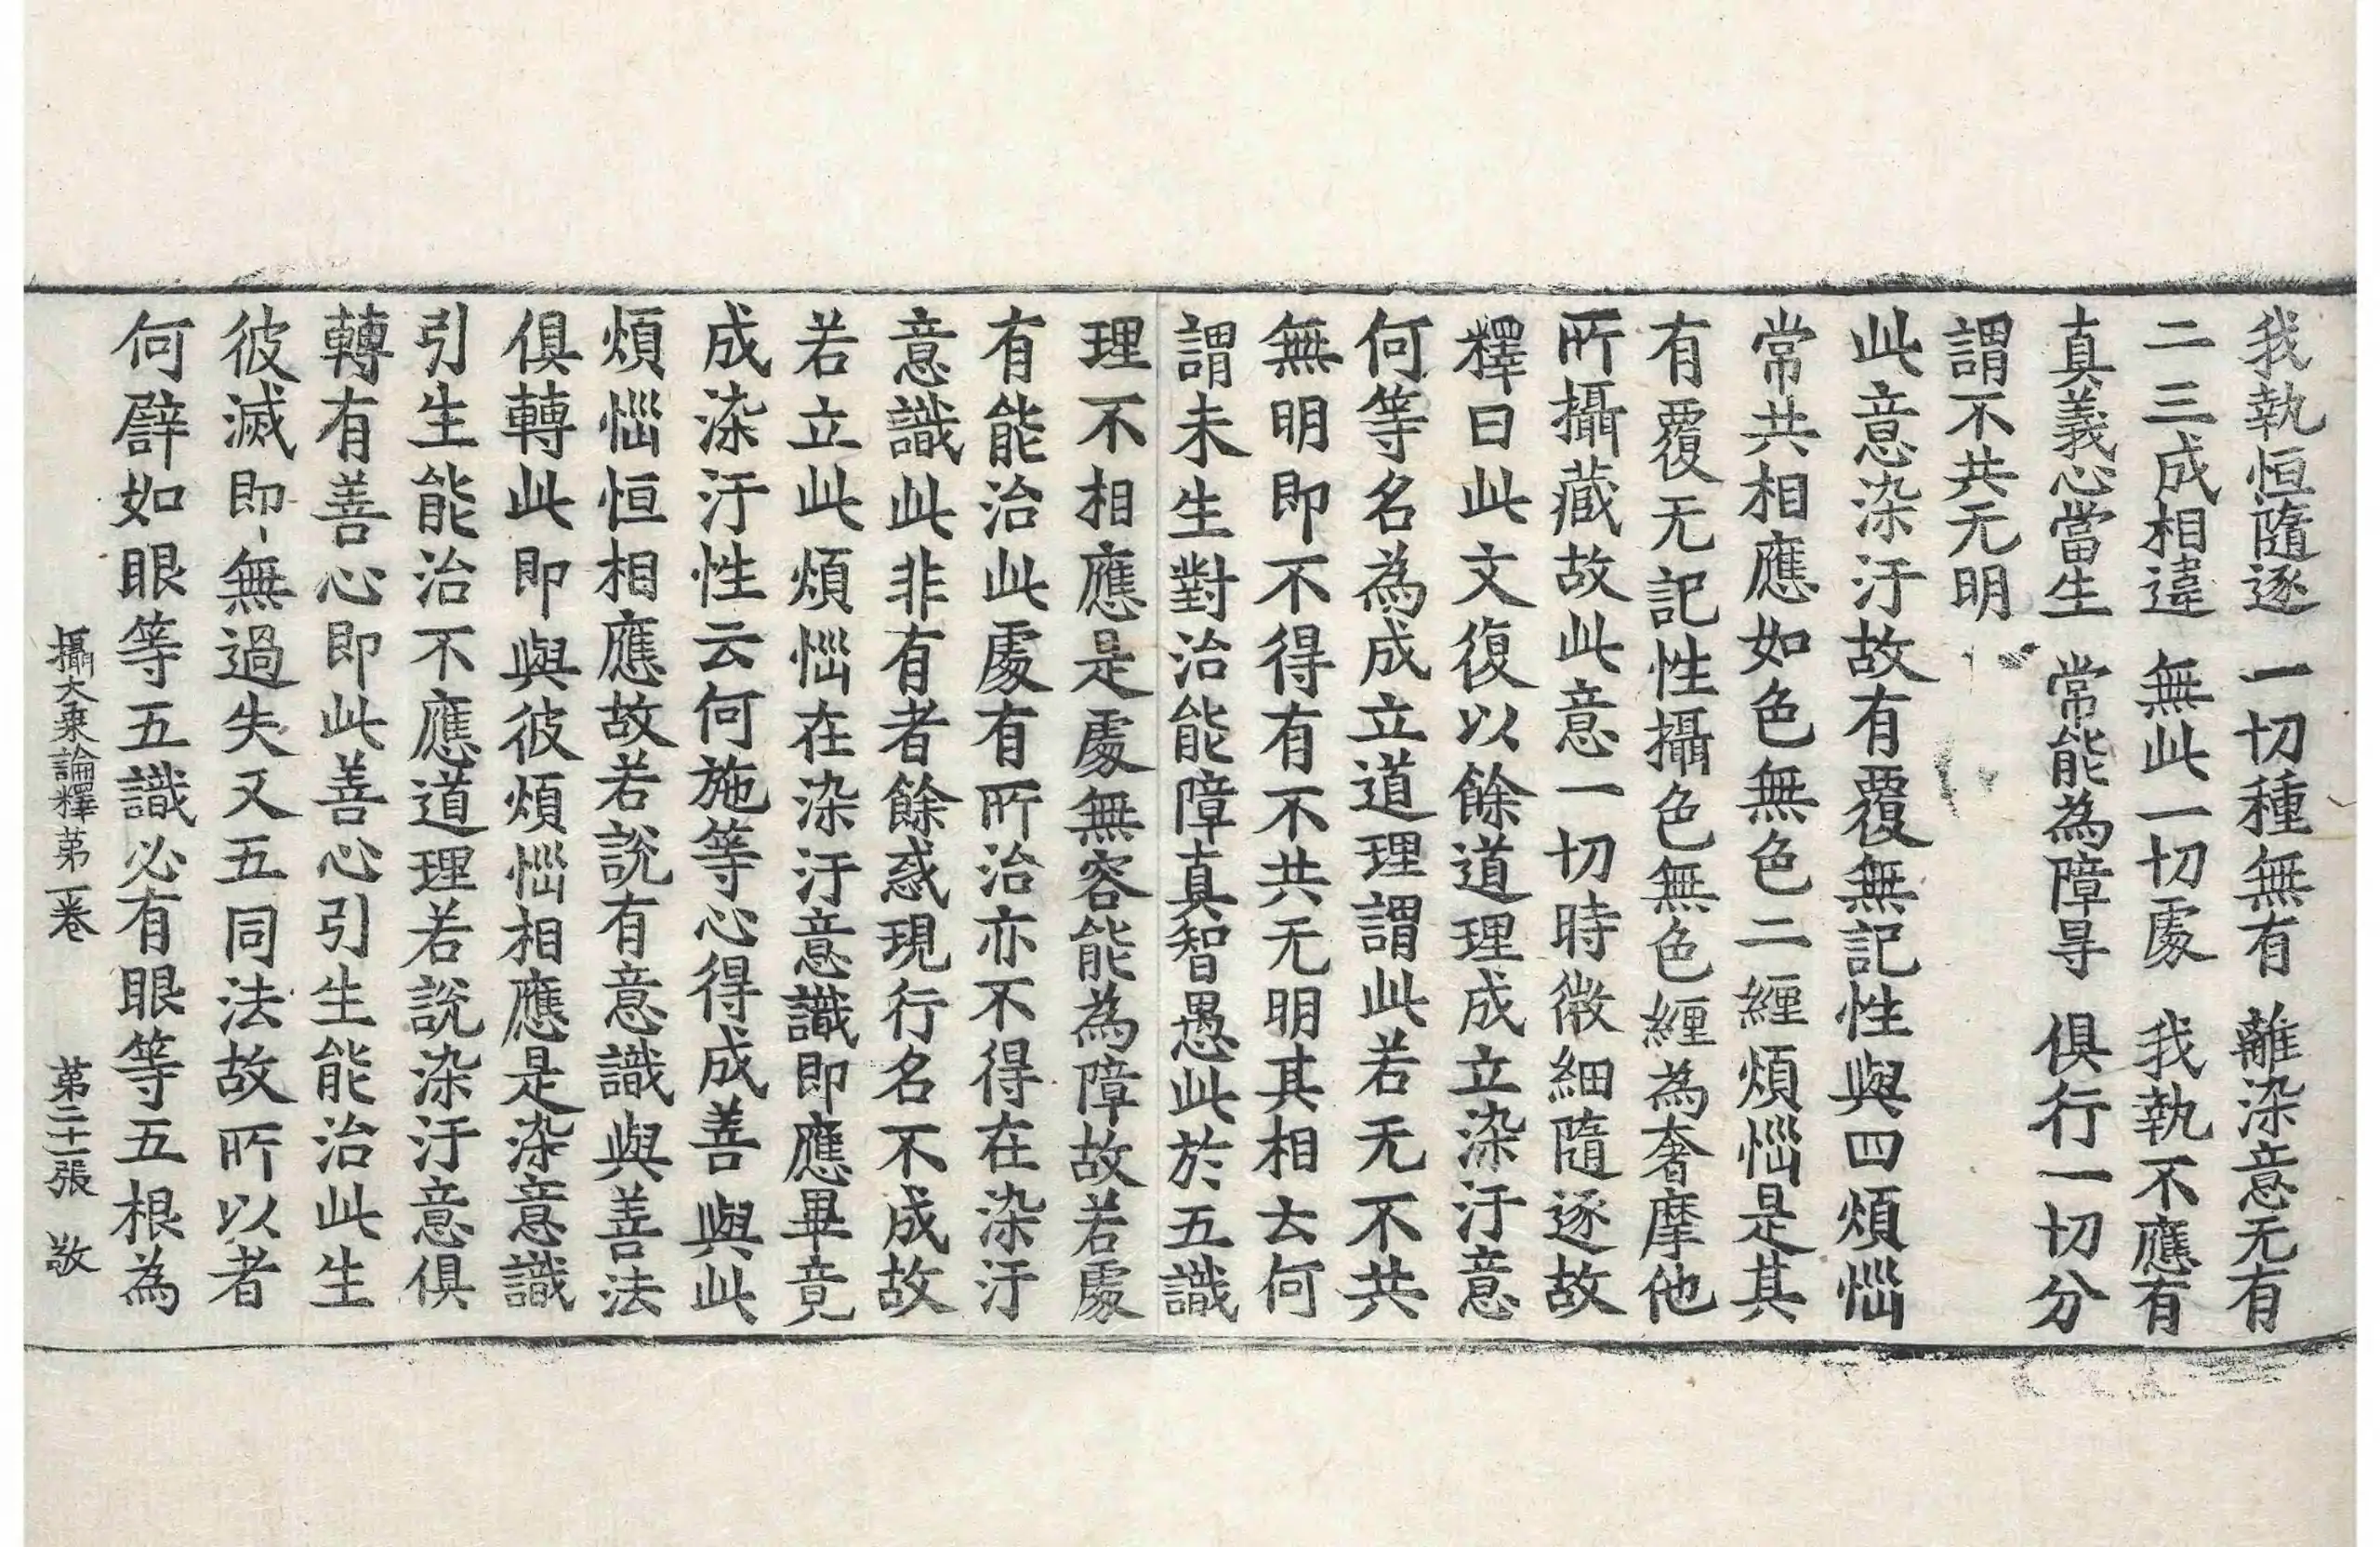 我執恒隨逐 一切種無有 離染意无有
二三成相違 無此一切處 我執不應有
真義心當生 常能為障㝵 俱行一切分
謂不共无明
此意染汙故有覆無記性與四煩惱
常共相應如色無色二纏煩惱是其
有覆无記性攝色無色纏為奢摩他
所攝藏故此意一切時微細隨逐故
釋曰此文復以餘道理成立染汙意
何等名為成立道理謂此若无不共
無明即不得有不共无明其相去何
謂未生對治能障真智愚此於五識
理不相應是處無容能為障故若處
有能治此處有所治亦不得在染汙
意識此非有者餘惑現行名不成故
若立此煩惱在染汙意識即應畢竟
成染汙性云何施等心得成善與此
煩惱恒相應故若說有意識與善法
俱轉此即與彼煩惱相應是染意識
引生能治不應道理若說染汙意俱
轉有善心即此善心引生能治此生
彼滅即無過失又五同法故所以者
何譬如眼等五識必有眼等五根為
攝大乘論釋第一卷 第二十一張 敬